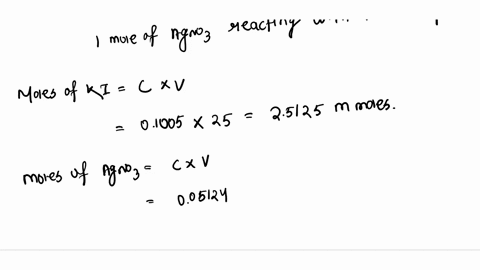 1 mole of AgNO3 reacting
Moles of KI = C x V
= 0.1005 x 25 = 2.5125 m moles.
moles of AgNO3 = C x V
= 0.05124